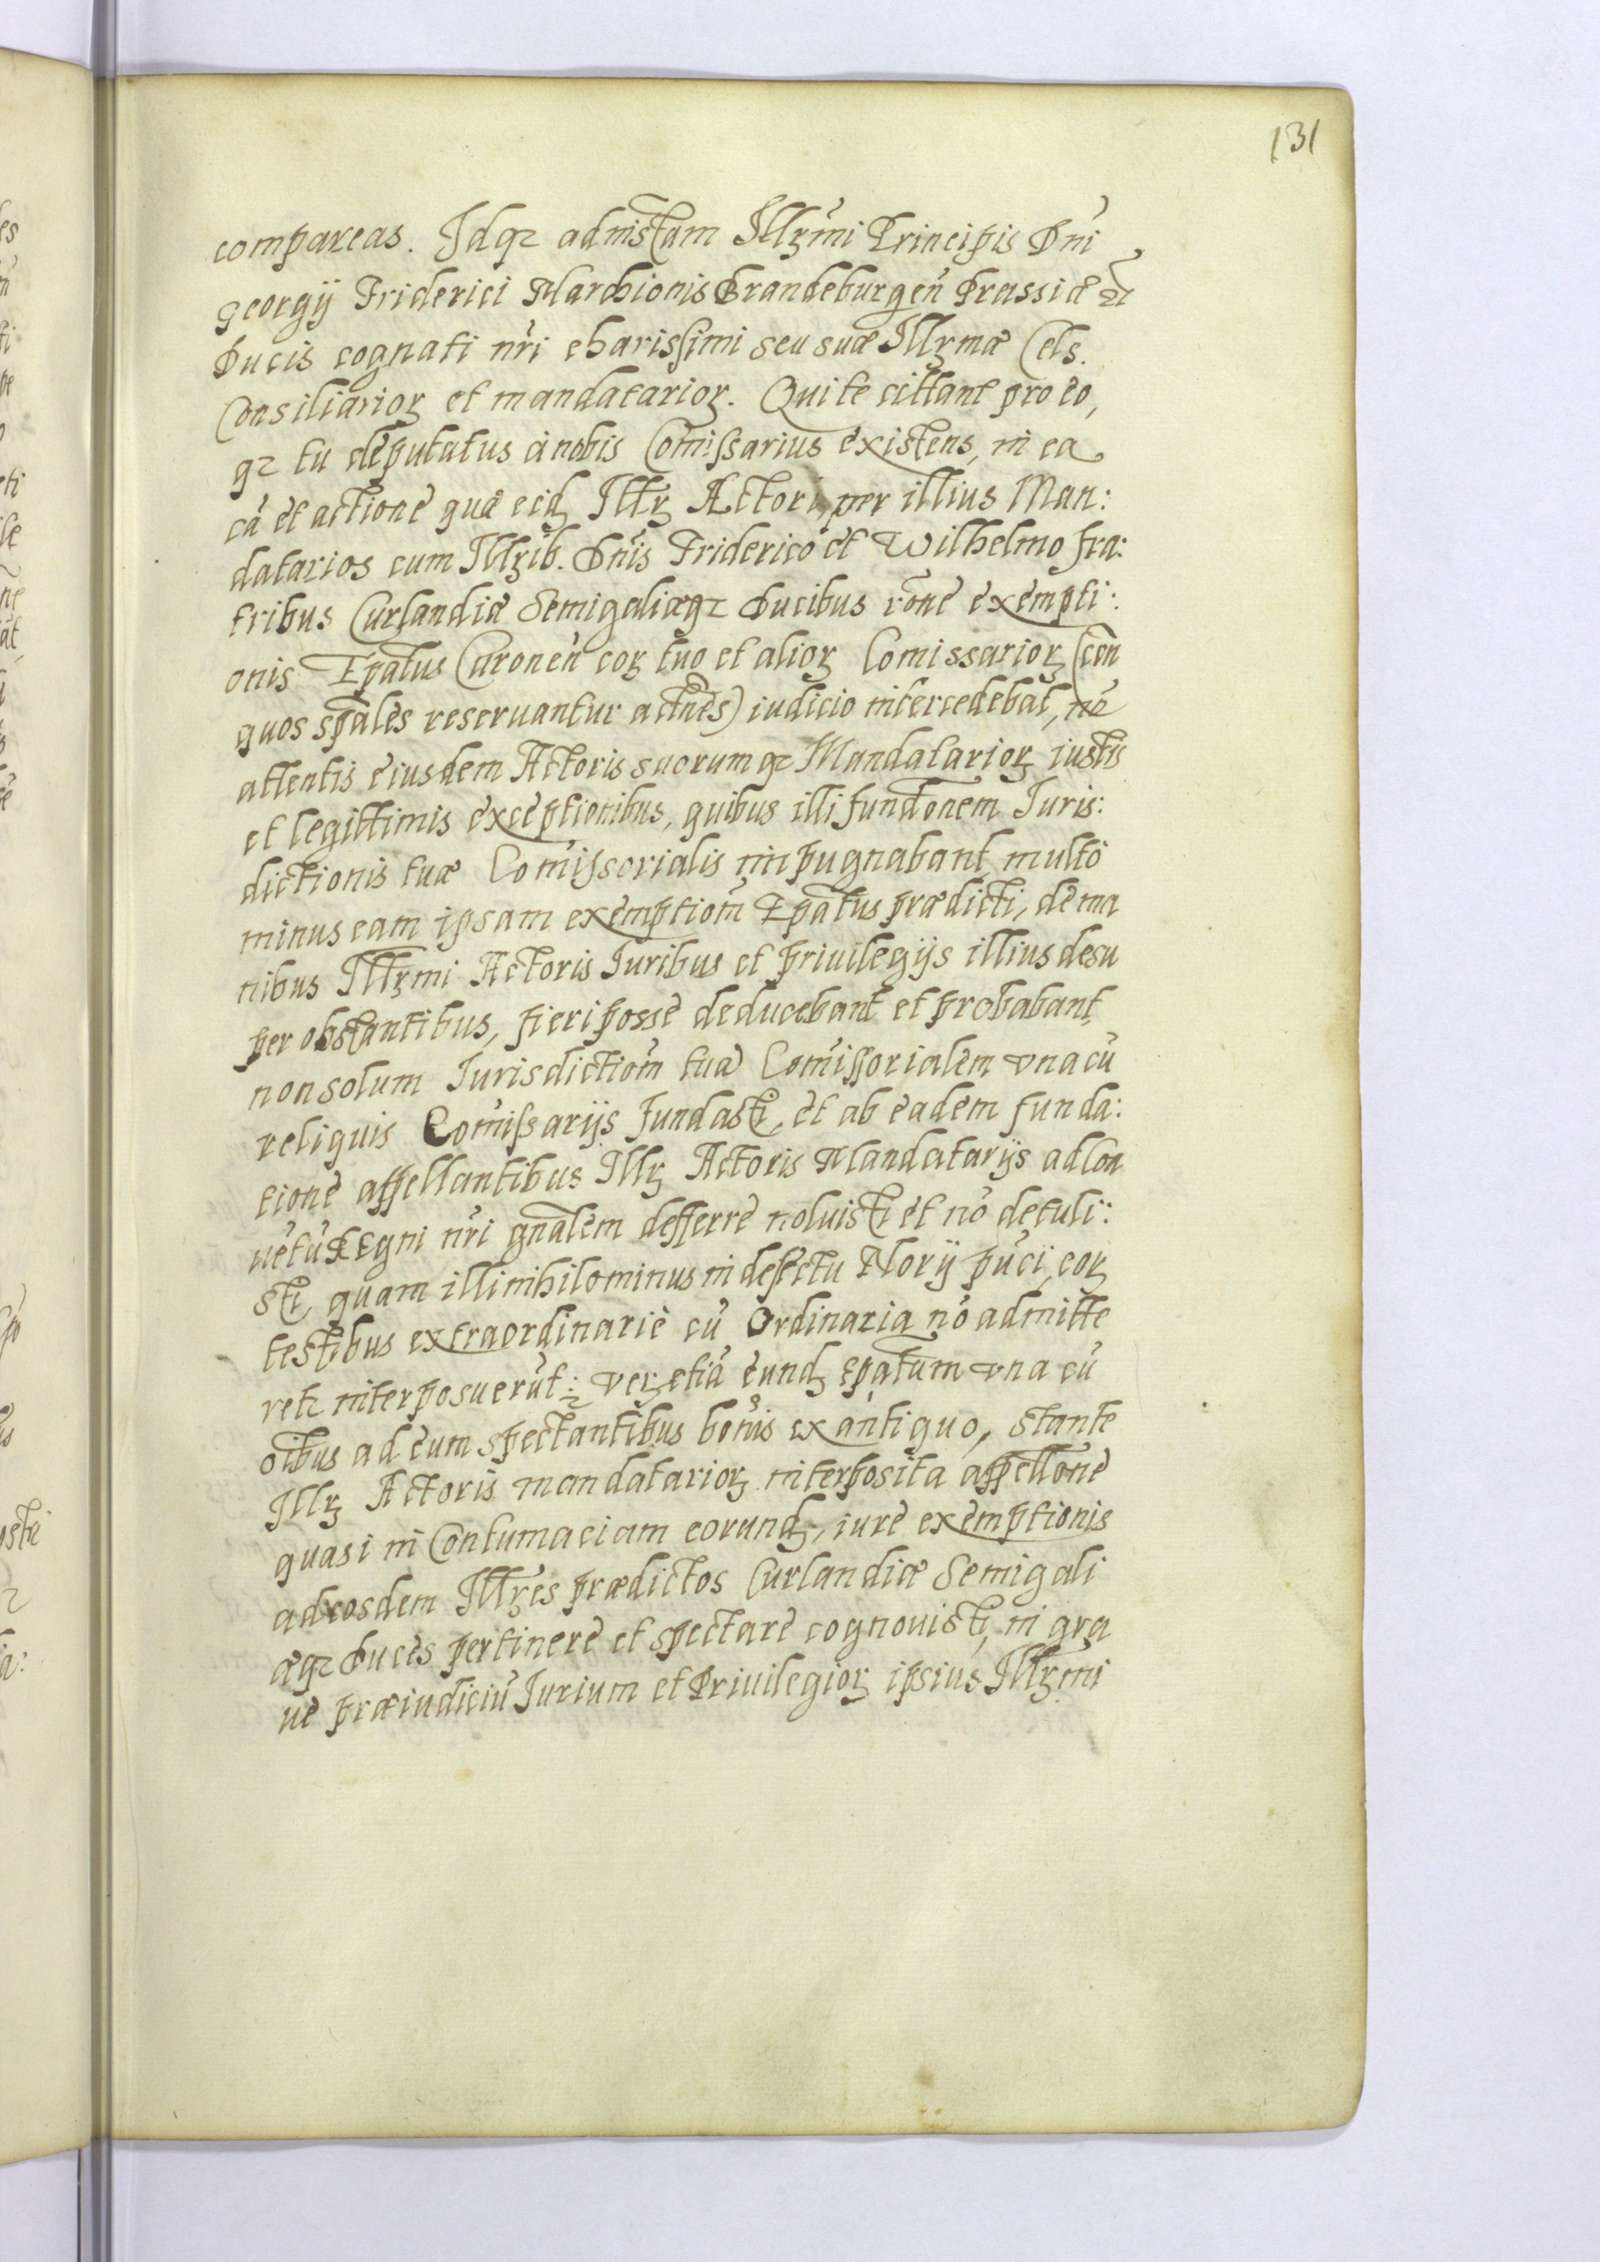 131
compareas. Idqꝫ ad instam Illꝫmi Principis Dni
Georgij Friderici Marchionis Brandeburgeñ Prussiæ ꝛc
Ducis cognati nri charissimi seu suæ Illꝫmæ Cels.
Consiliarioꝝ et mandatarioꝝ. Qui te cittant pro eo,
qꝫ tu deputatus à nobis Comissarius existens, in ea
cã et actione quã eidꝫ Illꝫ Actori, per illius Man:
datarios cum Illꝫib. Dnis Friderico et Wilhelmo fra:
tribus Curlandiæ Semigaliæqꝫ Ducibus rõne exempti:
onis Epatus Curoneñ coꝝ tuo et alioꝝ Comissarioꝝ (con
quos spales reseruantur actnes) iudicio intercedebat, nõ
attentis eiusdem Actoris suorumqꝫ Mandatarioꝝ iustis
et legittimis exceptionibus, quibus illi fundonem Juris:
dictionis tuæ Comissorialis impugnabant, multo
minus eam ipsam exemptiom Epatus prædicti, de ma
nibus Illꝫmi Actoris Juribus et priuilegijs illius desu
per obstantibus, fieri posse deducebant et probabant,
non solum Jurisdictiom tuã Comissorialem vna cũ
reliquis Comissarijs fundasti, et ab eadem funda:
tione appellantibus Illꝫ Actoris Mandatarijs ad Con
uetũ Regni nri gnalem defferre noluisti et nõ detuli:
sti, quam illi nihilominus in defectu Norij puci, coꝝ
testibus extraordinariè cũ Ordinaria nõ admitte
retꝛ interposuerũt: veꝝ etiã eundꝫ Epatum vna cũ
oibus ad eum spectantibus bonis ex antiquo, stante
Illꝫ Actoris mandatarioꝝ interposita appellone
quasi in Contumaciam eorundꝫ, iure exemptionis
ad eosdem Illꝫes prædictos Curlandiæ Semigali
æqꝫ Duces pertinere et spectare cognouisti, in gra
ue præiudiciũ Jurium et Priuilegioꝝ ipsius Illꝫmi